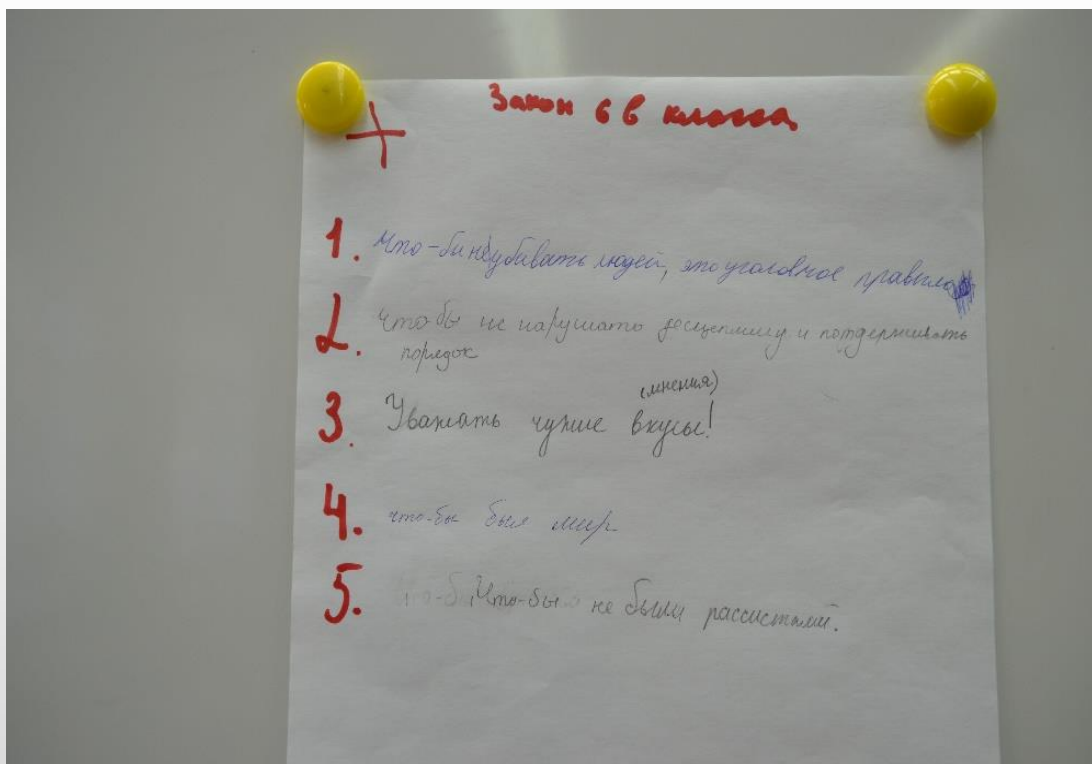 Закон 6 в класса
+
1. Что-бы не убивать людей, это уголовное правило
2. Что бы не нарушать десцеплину и потдерживать
порядок
(мнения)
3. Уважать чужие вкусы!
4. что-бы был мир
5. Что-бы не были рассистами.